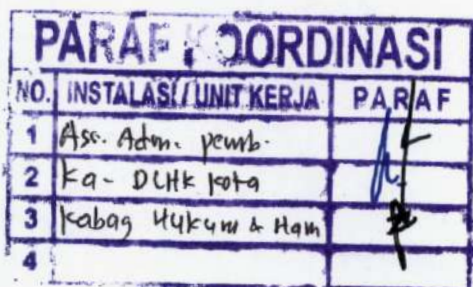 PARAF KOORDINASI
NO. INSTALASI / UNIT KERJA PARAF
1 Ass. Adm. pemb.
2 Ka- DLHK kota
3 Kabag Hukum & Ham
4